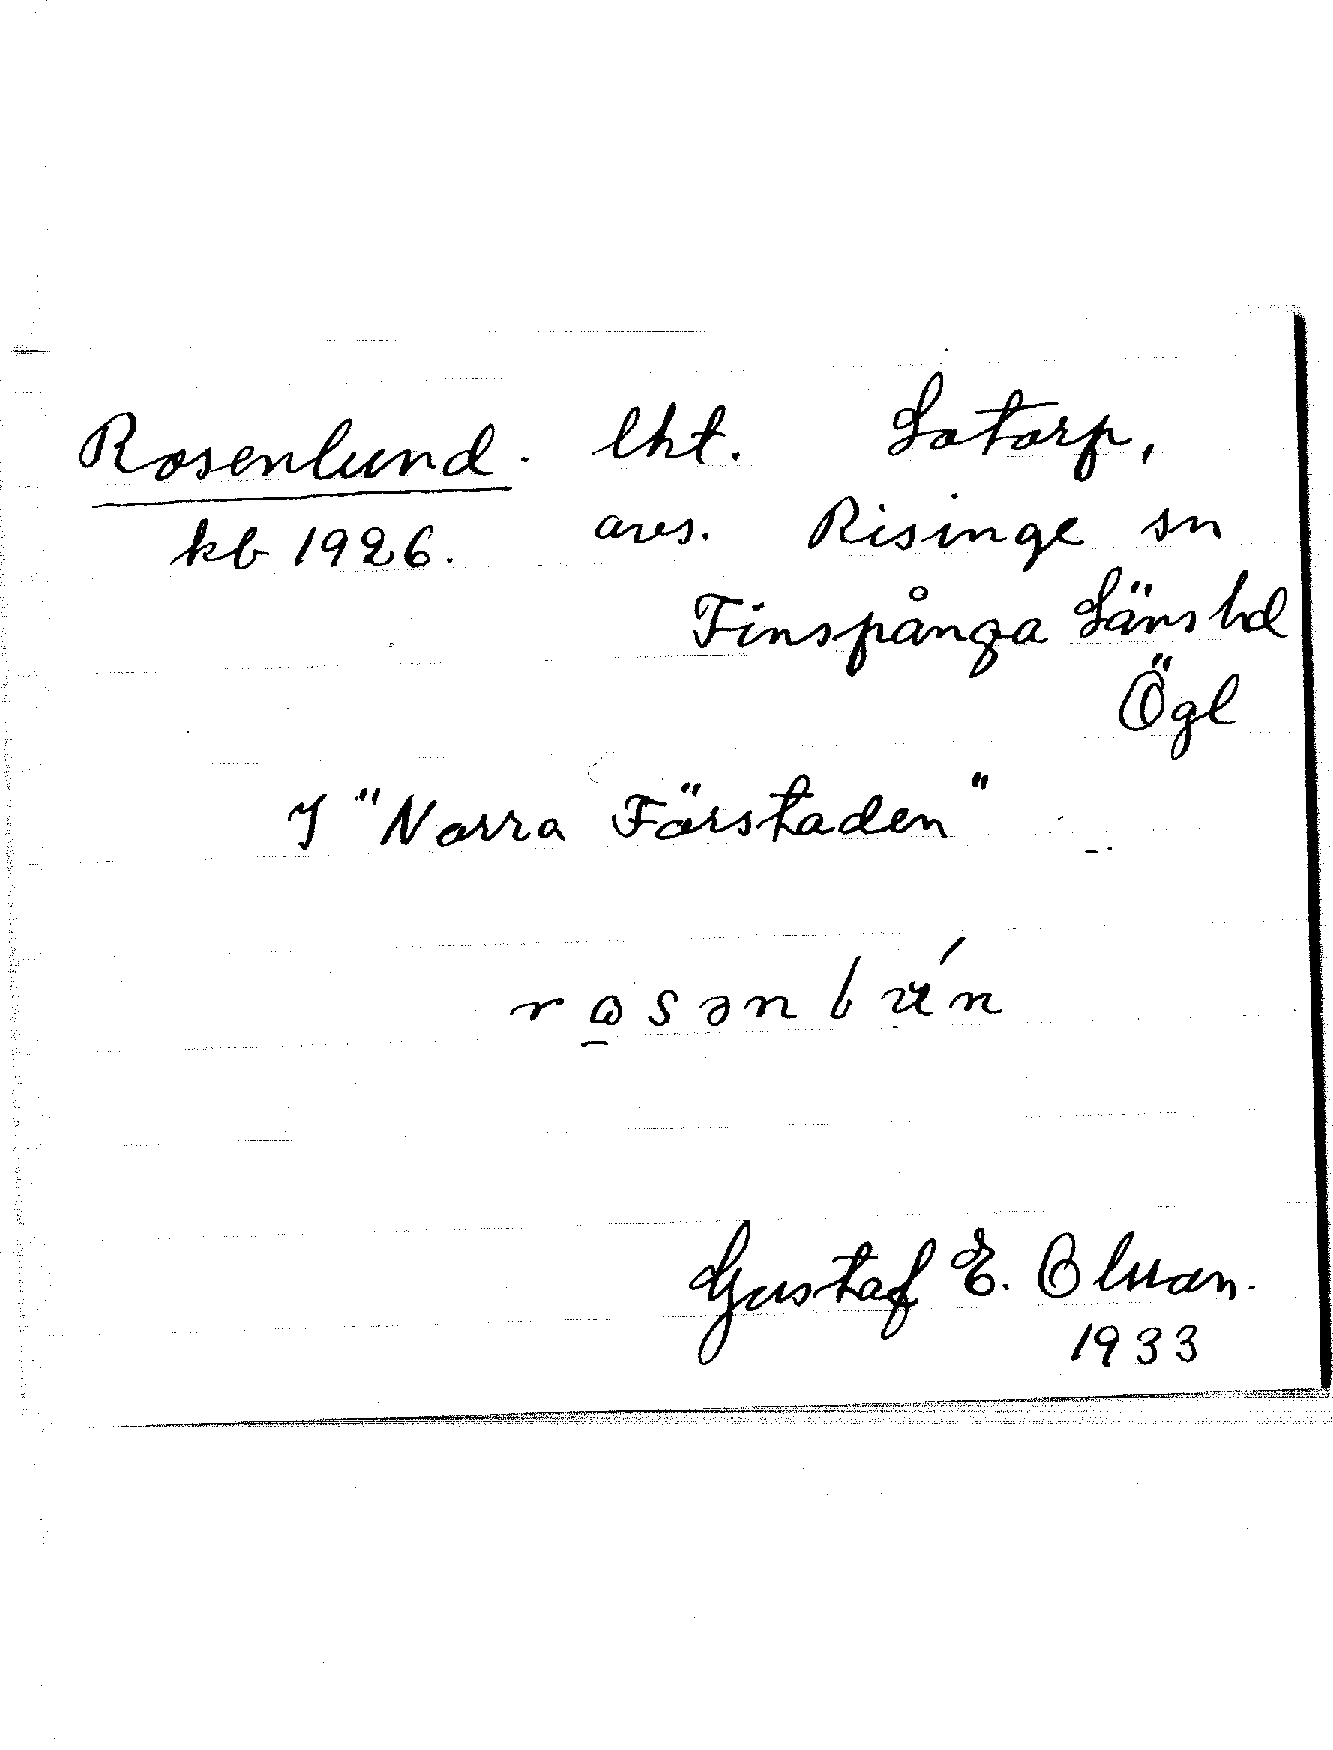 Rosenlund. lht. Lotorp,
kb 1926. avs. Risinge sn
Finspånga Läns hd
Ögl
I "Norra Förstaden"
Gustaf E. Olsson.
1933